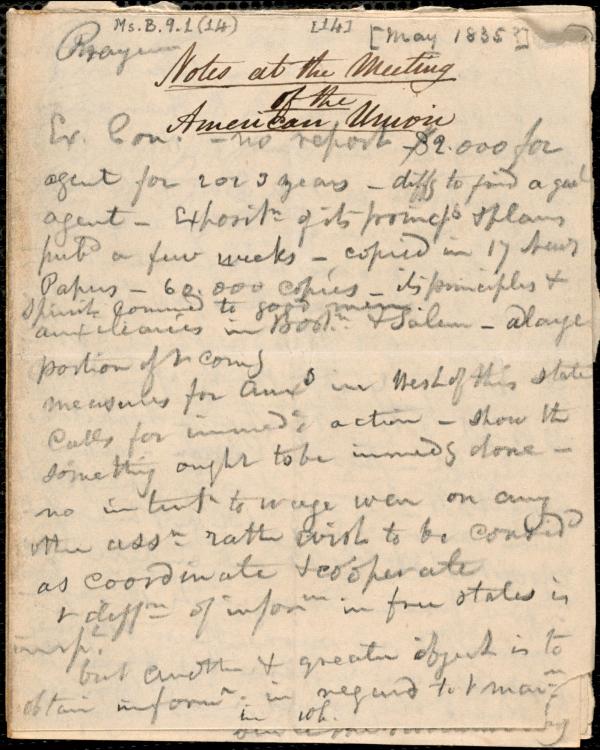 Ms. B. 9. 1 (14) [14] [May 1835?]
Prayer
Notes at the Meeting
of the
American Union
Ex. Com. - no report - $2.000 for
agent for 2 or 3 years - diffy to find a good
agent - Expositn of its princps & plans
pubd a few weeks - copied in 17 News
Papers - 60.000 copies - its principles &
spirit commd to good men
auxiliaries in Bostn & Salem - a large
portion of
measures for Auxs in West of this state
Calls for immede action - show tht
something ought to be immedy done -
no intentn to wage war on any
other assn rather wish to be considd
as coordinate & cooperate
t diffn of informn in free states is
impt
but another & greater object is to
obtain informn. in regard to t mann
in wh.